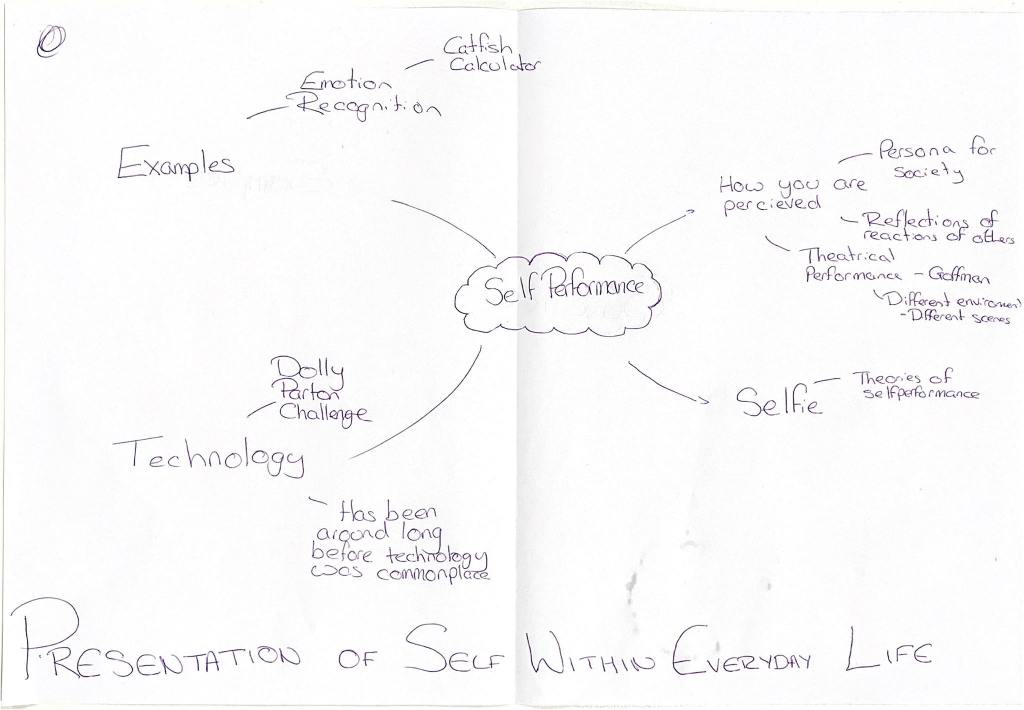 Catfish
Calculator
Emotion
Recognition
Examples
Persona for
society
How you are
percieved
Reflections of
reactions of others
Theatrical
Performance - Goffman
Different enviroment
- Different scenes
Self Performance
Selfie
Theories of
selfperformance
Dolly
Parton
Challenge
Technology
Has been
around long
before technology
was commonplace
PRESENTATION OF SELF WITHIN EVERYDAY LIFE